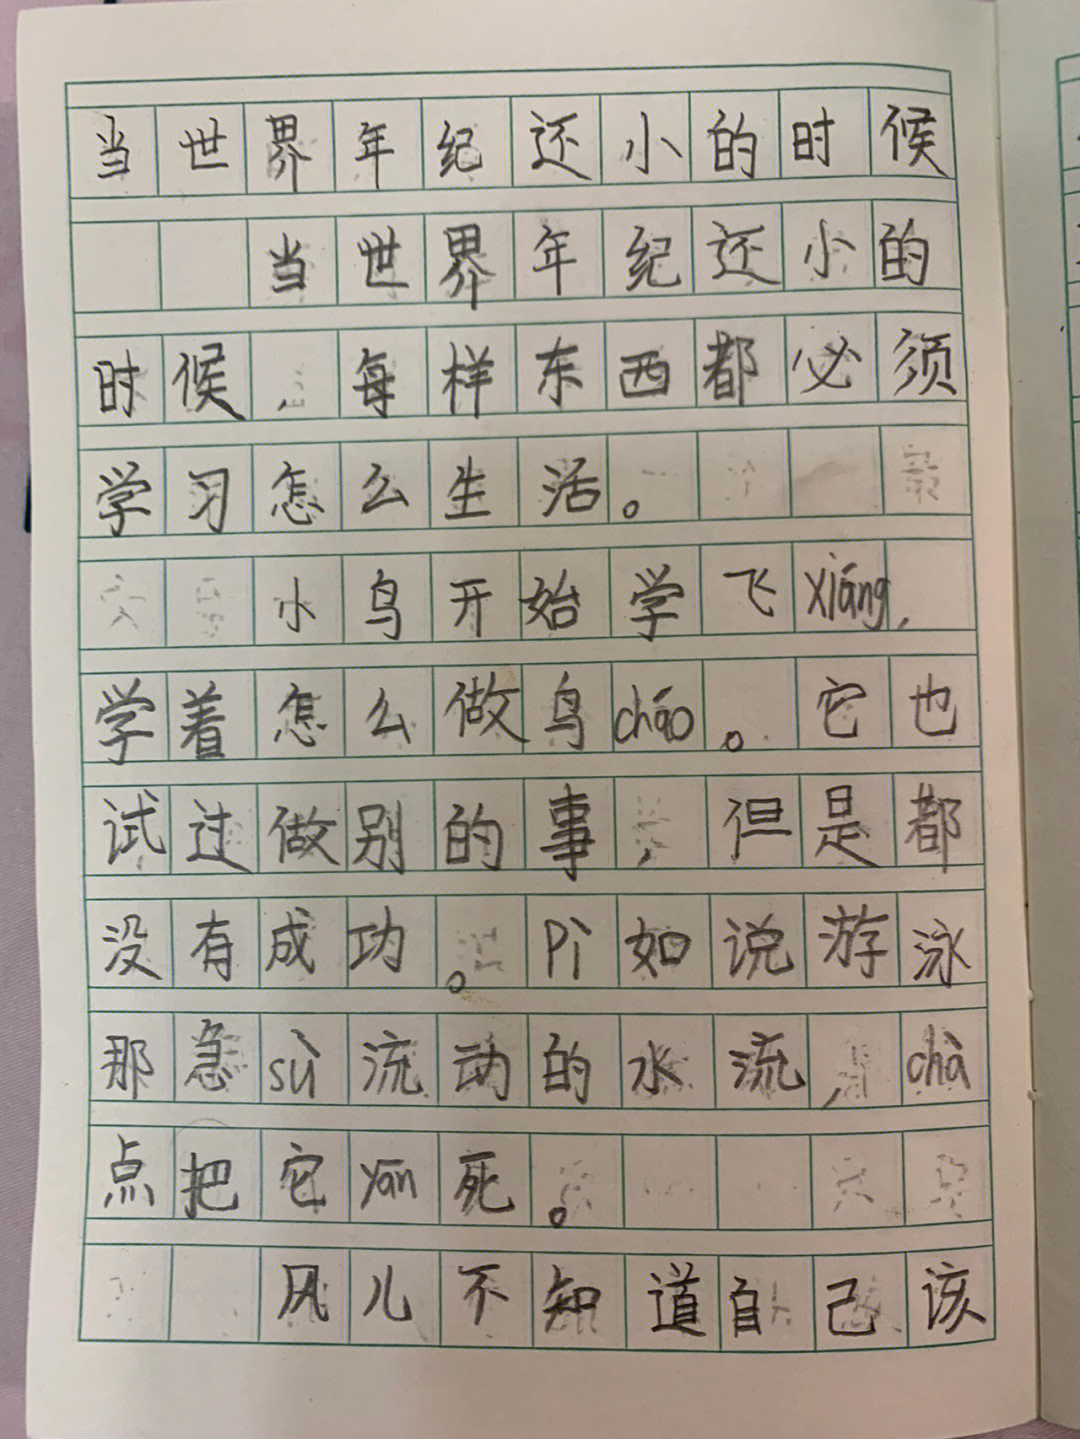 当世界年纪还小的时候
当世界年纪还小的
时候，每样东西都必须
学习怎么生活。
小鸟开始学飞xiáng，
学着怎么做鸟cháo。它也
试过做别的事，但是都
没有成功。pì如说游泳
那急sù流动的水流，chà
点把它yān死。
风儿不知道自己该